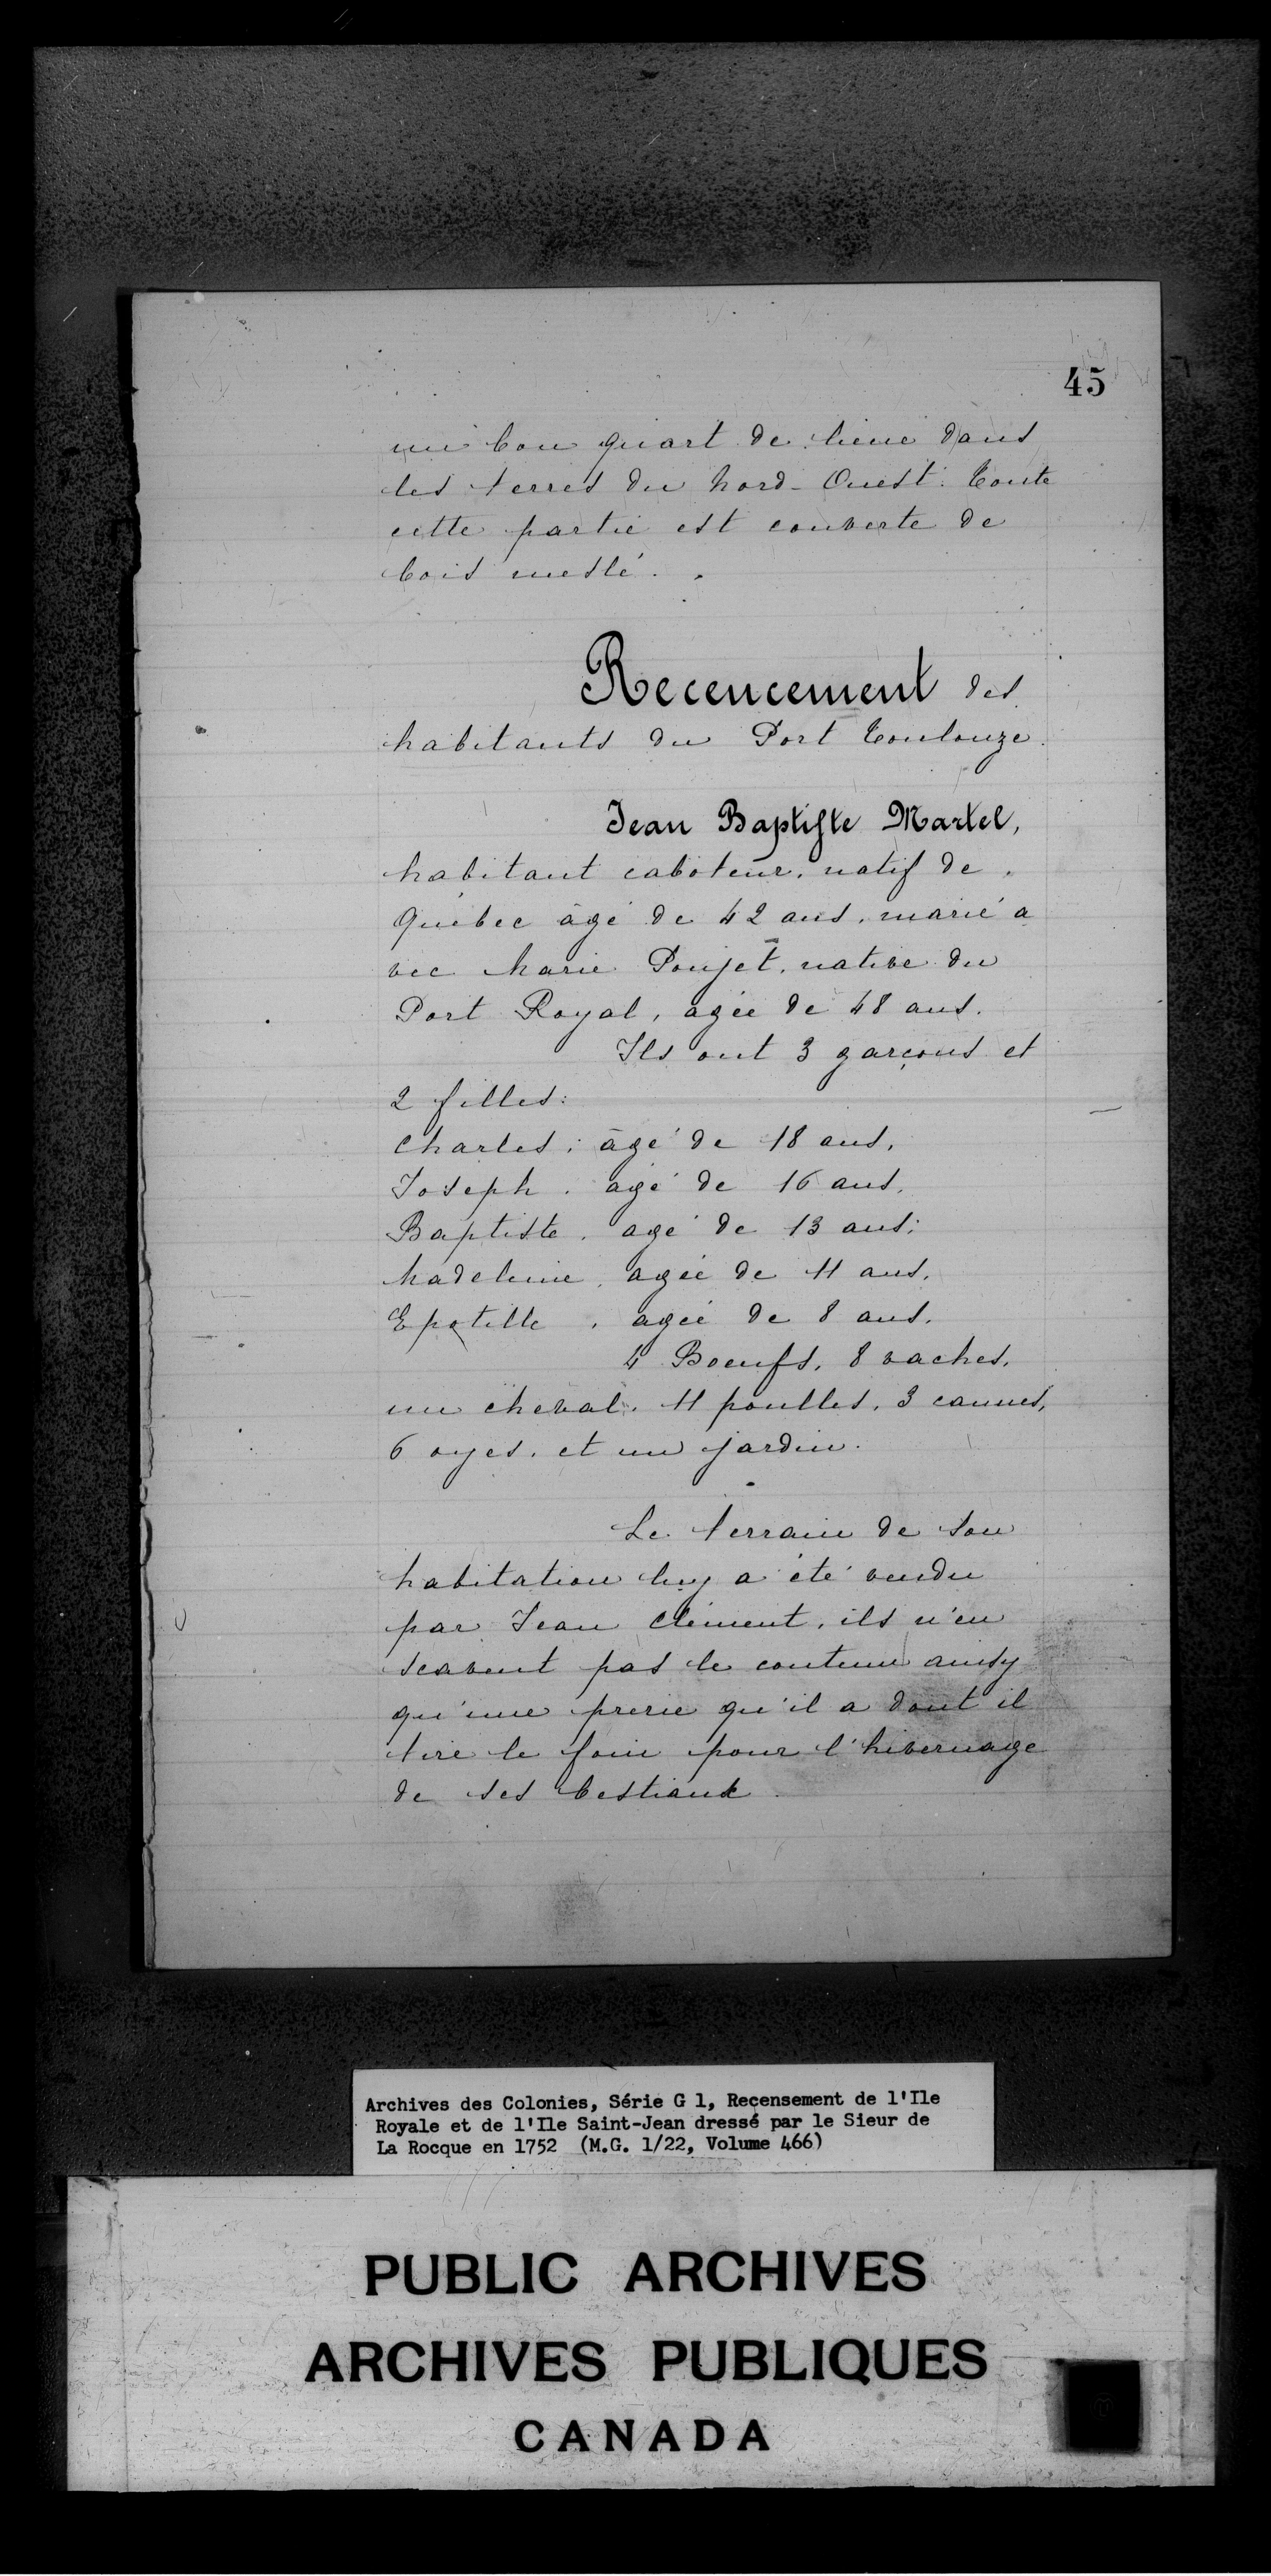 45
un bon quart de lieue dans
les terres du Nord-Ouest. Toute
cette partie est couverte de
bois meslé.
Recencement des
habitants du Port Toulouze.
Jean Baptiste Martel,
habitant caboteur, natif de
Québec âgé de 42 ans, marié a
vec Marie Poujet, native du
Port Royal, agée de 48 ans.
Ils ont 3 garçons et
2 filles:
Charles, âgé de 18 ans,
Joseph, agé de 16 ans,
Baptiste, agé de 13 ans;
Madeleine, agée de 11 ans,
Epotille, agée de 8 ans.
4 Boeufs, 8 vaches,
un cheval, 11 poulles, 3 cannes,
6 oyes, et un jardin.
Le terrain de son
habitation luy a été vendu
par Jean Clément, ils n'en
scavent pas le contenu ainsy
qu'une prerie qu'il a dont il
tire le foin pour l'hivernage
de ses bestiaux.
Archives des Colonies, Série G 1, Recensement de l'Ile
Royale et de l'Ile Saint-Jean dressé par le Sieur de
La Rocque en 1752 (M.G. 1/22, Volume 466)
PUBLIC ARCHIVES
ARCHIVES PUBLIQUES
CANADA